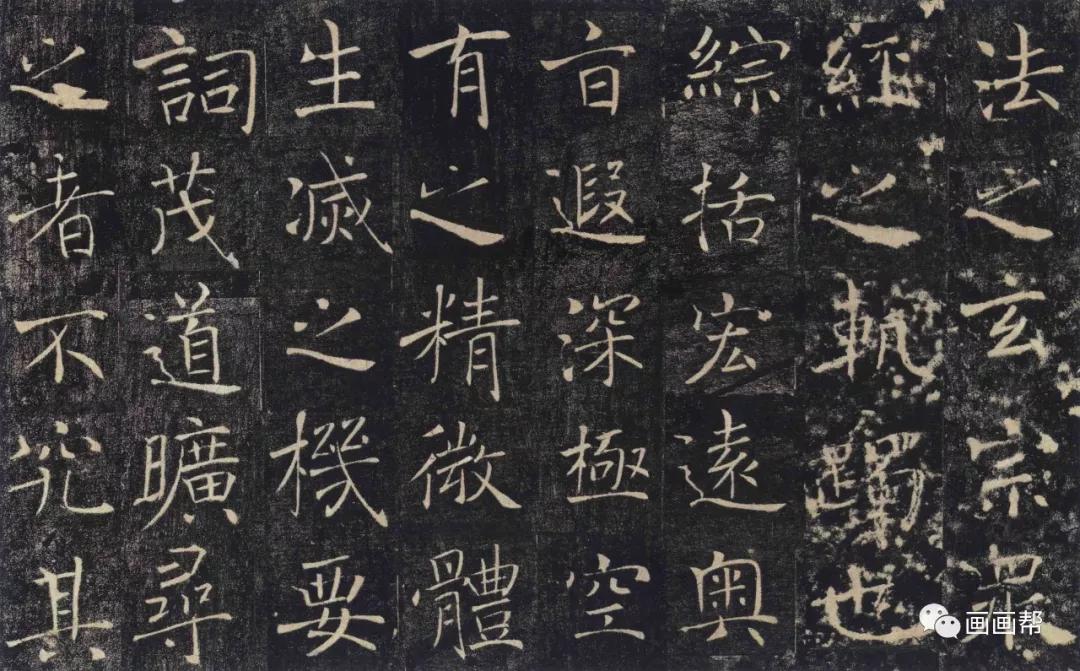 法之玄宗眾
經之軌躅也
綜括宏遠奧
旨遐深極空
有之精微體
生滅之機要
詞茂道曠尋
之者不究其
画画帮